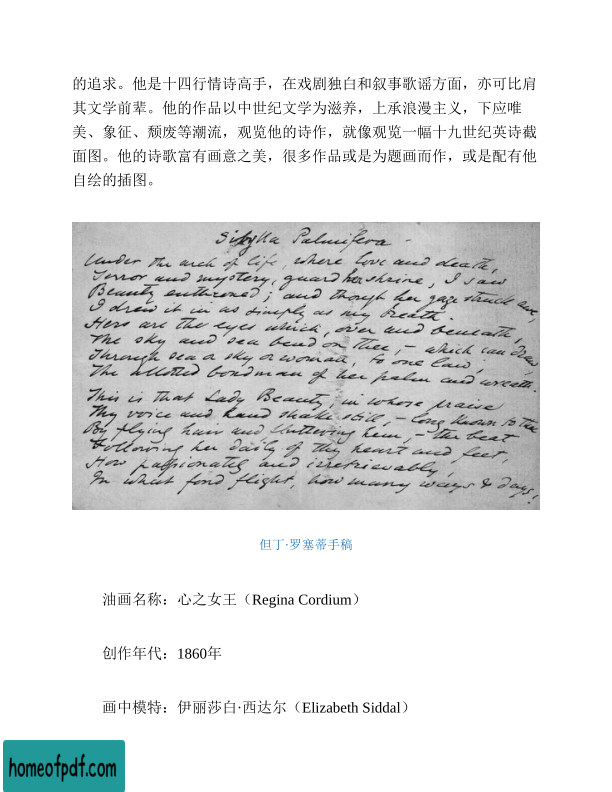 的追求。他是十四行情诗高手，在戏剧独白和叙事歌谣方面，亦可比肩
其文学前辈。他的作品以中世纪文学为滋养，上承浪漫主义，下应唯
美、象征、颓废等潮流，观览他的诗作，就像观览一幅十九世纪英诗截
面图。他的诗歌富有画意之美，很多作品或是为题画而作，或是配有他
自绘的插图。
Sibylla Palmifera
Under the arch of Life, where love and death,
Terror and mystery, guard her shrine, I saw
Beauty enthroned; and though her gaze struck awe,
I drew it in as simply as my breath.
Hers are the eyes which, over and beneath,
The sky and sea bend on thee, – which can draw,
Through sea or sky or woman, to one law,
The allotted bondman of her palm and wreath.
This is that Lady Beauty, in whose praise
Thy voice and hand shake still, – long known to thee
By flying hair and fluttering hem, – the beat
Following her daily of thy heart and feet,
How passionately and irretrievably,
In what fond flight, how many ways & days!
但丁·罗塞蒂手稿
油画名称：心之女王（Regina Cordium）
创作年代：1860年
画中模特：伊丽莎白·西达尔（Elizabeth Siddal）
homeofpdf.com